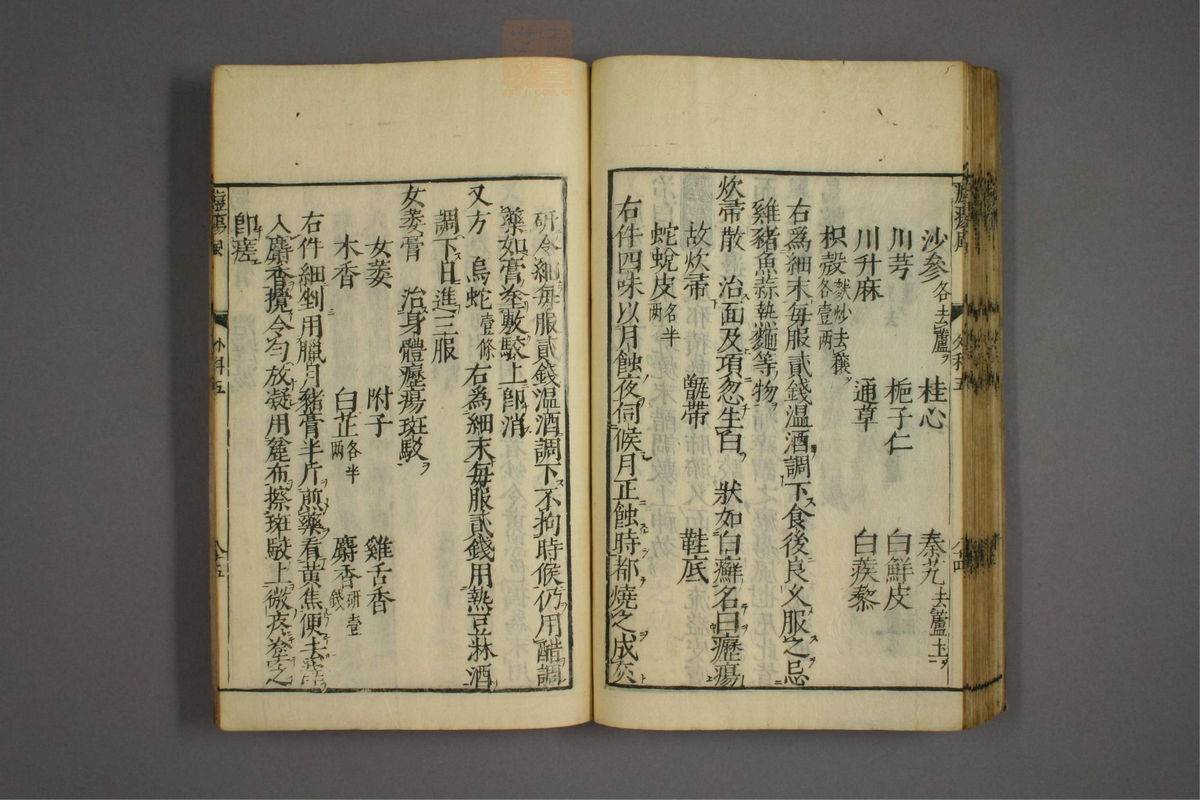 沙參各去蘆 桂心 秦艽去蘆土
川芎 梔子仁 白鮮皮
川升麻 通草 白蒺藜
枳殼麩炒去穰各壹兩
右爲細末每服貳錢温酒調下食後良久服之忌
雞豬魚蒜熱麵等物
炊帚散 治面及項忽生白 狀如白癬名曰癧瘍
故炊帚 甑帶 鞋底
蛇蛻皮各半兩
右件四味以月蝕夜伺候月正蝕時都燒之成灰
研令細每服貳錢温酒調下不拘時候仍用醋調
藥如膏塗敷駮上卽消
又方 烏蛇壹條 右爲細末每服貳錢用熱豆淋酒
調下日進三服
女萎膏 治身體癧瘍斑駮
女萎 附子 雞舌香
木香 白芷各半兩 麝香研壹錢
右件細剉用臘月豬膏半斤煎藥看黄焦便去滓
入麝香攪令勻放凝用麄布擦斑駮上微赤塗之
卽瘥
外科五